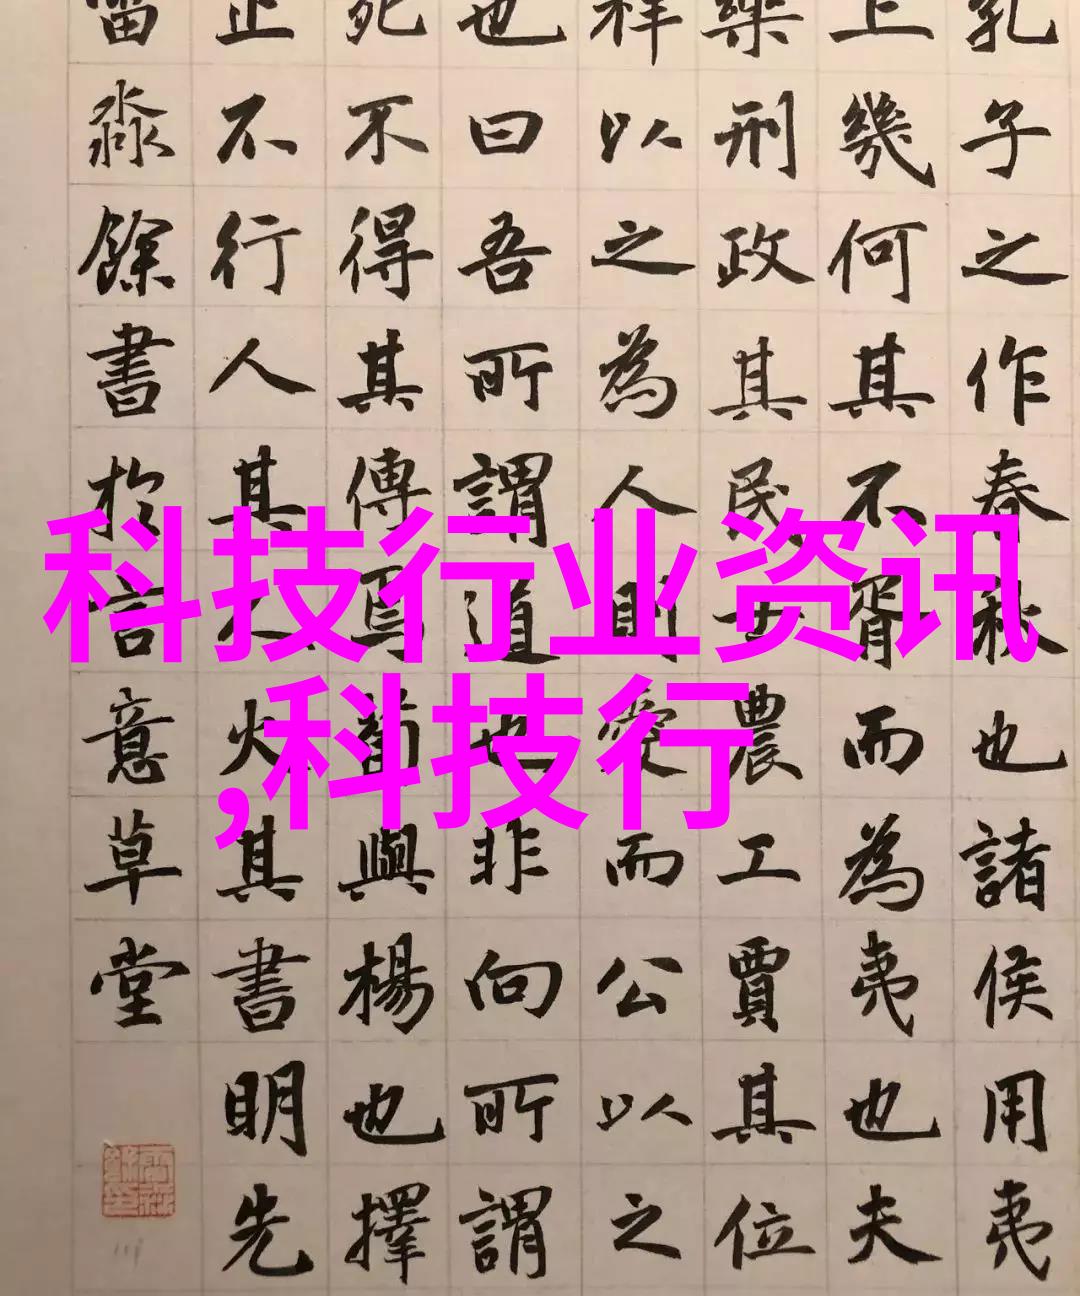 科技行业资讯
,科技行
孔子之作春秋也諸侯用夷
上幾何其不胥而為夷也夫
樂刑政其民士農工賈其位
祥以之為人則愛而公以之
也曰吾所謂道也非向所謂
死不得其傳焉荀與楊也擇
止不行人其人火其書明先
淼餘書於言意草堂